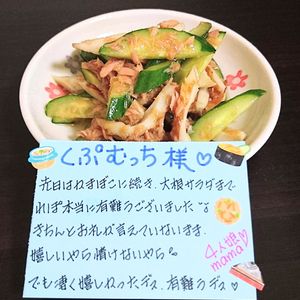 くぷむっち様♡
先日はねまぼこに続き、大根サラダまで
れぽ本当に有難うございました
きちんとお礼が言えていないまま、
嬉しいやら情けないやら
でも凄く嬉しかったデス、有難うデス♡
4人娘
mama